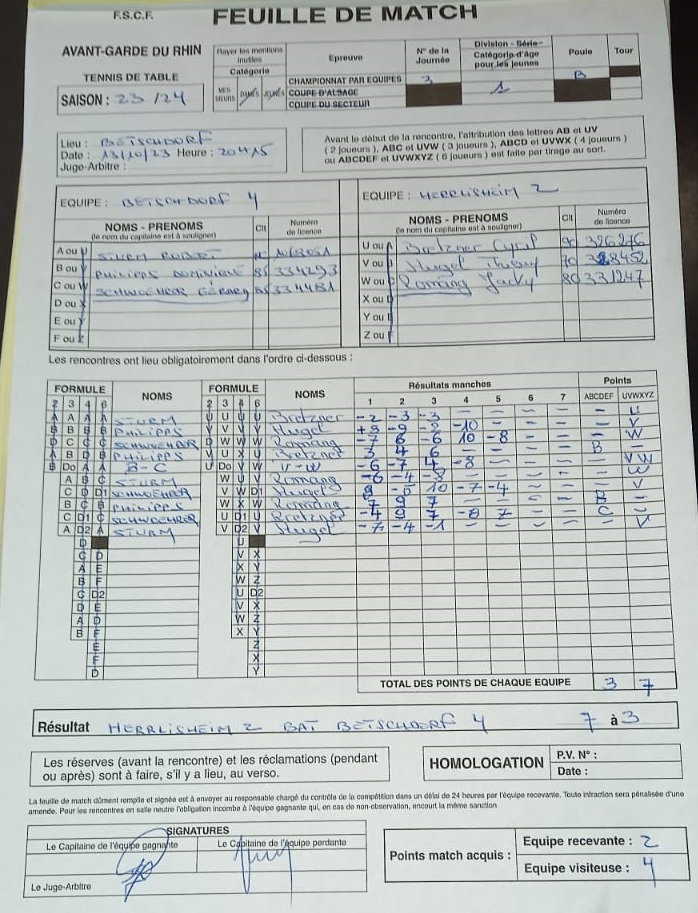 F.S.C.F. FEUILLE DE MATCH
AVANT-GARDE DU RHIN
TENNIS DE TABLE
SAISON : 23/24
Rayer les mentions inutiles
Catégorie
MESSIEURS DAMES JEUNES
Epreuve
CHAMPIONNAT PAR EQUIPES
COUPE D'ALSACE
COUPE DU SECTEUR
N° de la Journée
3
Division - Série-
Catégorie d'âge pour les jeunes
1
Poule
B
Tour
Lieu : BETSCHDORF
Date : 13/10/23 Heure : 20H15
Juge-Arbitre :
Avant le début de la rencontre, l'attribution des lettres AB et UV
(2 joueurs), ABC et UVW (3 joueurs), ABCD et UVWX (4 joueurs)
ou ABCDEF et UVWXYZ (6 joueurs) est faite par tirage au sort.
EQUIPE : BETSCHDORF 4
NOMS - PRENOMS
(le nom du capitaine est à souligner)
Clt
Numéro de licence
A ou U STURM ROBERT
B ou V PHILIPPS DOMINIQUE 85 334293
C ou W SCHWOEHRER GÉRARD 85 334481
D ou X
E ou Y
F ou Z
EQUIPE : HERRLISHEIM 2
NOMS - PRENOMS
(le nom du capitaine est à souligner)
Clt
Numéro de licence
U ou A Bretzner Cyril 90 326276
V ou B Hugel Thierry 70 328452
W ou C Romang Jacky 80 331247
X ou D
Y ou E
Z ou F
Les rencontres ont lieu obligatoirement dans l'ordre ci-dessous :
FORMULE NOMS FORMULE NOMS Résultats manches Points
2 3 4 6 2 3 4 6 1 2 3 4 5 6 7 ABCDEF UVWXYZ
A A A A STURM U U U U Bretzner -2 -3 -3 - - - - - U
B B B B PHILIPPS V V V V Hugel +9 -9 -2 -10 - - - - V
D C C C SCHWOEHRER D W W W Romang -7 6 -6 10 -8 - - - W
A B A B PHILIPPS V U X U Bretzner 3 4 6 - - - - B -
B Do A A B-C U Do V W V-W -6 -7 4 -8 - - - - VW
A B C STURM W U V Romang -6 -4 -8 - - - - - W
C D D1 SCHWOEHRER V W D1 Hugel 8 -5 10 -7 -4 - - - V
B C B PHILIPPS W X W Romang 7 9 7 - - - - B -
C D1 C SCHWOEHRER U D1 U Bretzner -4 9 7 -8 7 - - C -
A D2 A STURM V D2 V Hugel -7 -4 -1 - - - - - V
D U
C D V X
A E X Y
B F W Z
C D2 U D2
D E V X
A D W Z
B F X Y
E Z
F X
D Y
TOTAL DES POINTS DE CHAQUE EQUIPE 3 7
Résultat HERRLISHEIM 2 BAT BETSCHDORF 4 7 à 3
Les réserves (avant la rencontre) et les réclamations (pendant
ou après) sont à faire, s'il y a lieu, au verso.
HOMOLOGATION
P.V. N° :
Date :
La feuille de match dûment remplie et signée est à envoyer au responsable chargé du contrôle de la compétition dans un délai de 24 heures par l'équipe recevante. Toute infraction sera pénalisée d'une
amende. Pour les rencontres en salle neutre l'obligation incombe à l'équipe gagnante qui, en cas de non-observation, encourt la même sanction
SIGNATURES
Le Capitaine de l'équipe gagnante
Le Capitaine de l'équipe perdante
Le Juge-Arbitre
Points match acquis :
Equipe recevante : 2
Equipe visiteuse : 4